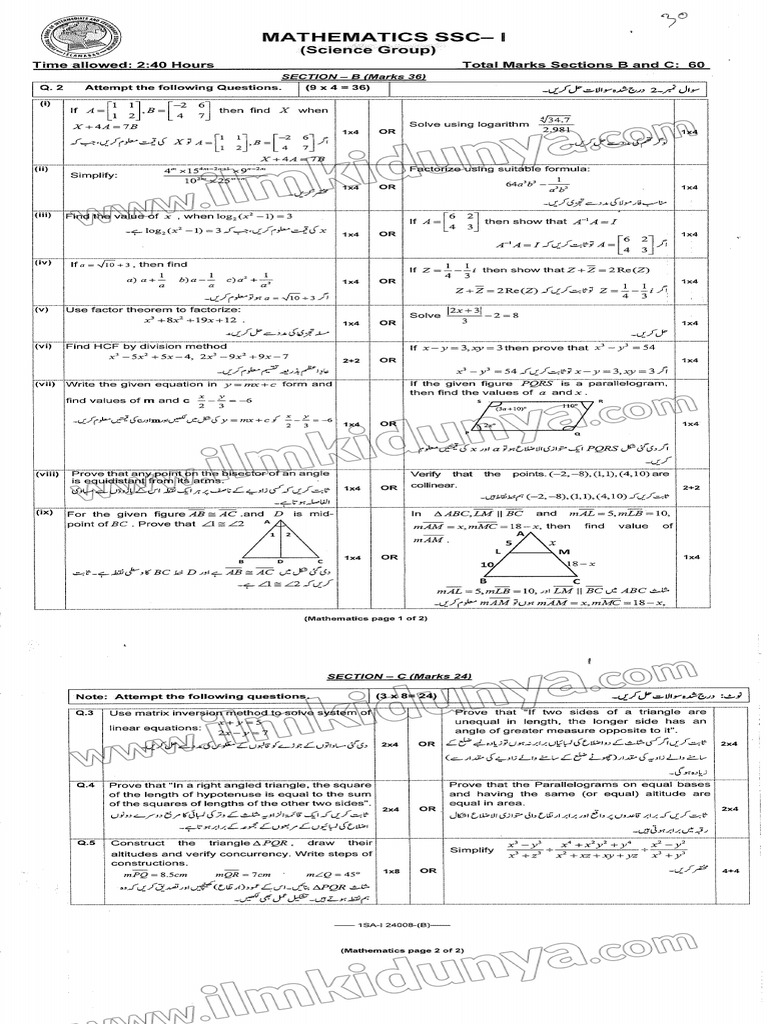 30
MATHEMATICS SSC– I
(Science Group)
Time allowed: 2:40 Hours
Total Marks Sections B and C: 60
SECTION – B (Marks 36)
Q. 2 Attempt the following Questions. (9 x 4 = 36) سوال نمبر-2 درج شدہ سوالات حل کریں۔
(i) If A = [1 1; 1 2], B = [−2 6; 4 7] then find X when
X + 4A = 7B
اگر A = [1 1; 1 2], B = [−2 6; 4 7] تو X کی قیمت معلوم کریں، جب کہ
X + 4A = 7B
1x4 OR
Solve using logarithm ∛34.7 / 2.981
1x4
(ii) Simplify:
مختصر کریں۔
1x4 OR
Factorize using suitable formula:
64a³b³ − 1/(a³b³)
مناسب فارمولا کی مدد سے تجزی کریں۔
1x4
(iii) Find the value of x , when log₂(x² −1) = 3
x کی قیمت معلوم کریں، جب کہ log₂(x² −1) = 3 ہے۔
1x4 OR
If A = [6 2; 4 3] then show that A⁻¹A = I
اگر A = [6 2; 4 3] تو ثابت کریں کہ A⁻¹A = I
1x4
(iv) If a = √10 + 3 , then find
a) a + 1/a b) a − 1/a c) a² + 1/a²
اگر a = √10 + 3 ہو تو معلوم کریں۔
1x4 OR
If Z = 1/4 − 1/3 i then show that Z + Z̅ = 2 Re(Z)
اگر Z = 1/4 − 1/3 i تو ثابت کریں کہ Z + Z̅ = 2 Re(Z)
1x4
(v) Use factor theorem to factorize:
x³ + 8x² + 19x + 12 .
مسئلہ تجزی کی مدد سے حل کریں۔
1x4 OR
Solve |2x + 3|/3 − 2 = 8
حل کریں۔
1x4
(vi) Find HCF by division method
x³ − 5x² + 5x − 4, 2x³ − 9x² + 9x − 7
عاد اعظم بذریعہ تقسیم معلوم کریں۔
2+2 OR
If x − y = 3, xy = 3 then prove that x³ − y³ = 54
اگر x − y = 3, xy = 3 تو ثابت کریں کہ x³ − y³ = 54
1x4
(vii) Write the given equation in y = mx + c form and
find values of m and c x/2 − y/3 = −6
x/2 − y/3 = −6 کو y = mx + c کی شکل میں لکھیں اور m اور c کی قیمتیں معلوم کریں۔
1x4 OR
If the given figure PQRS is a parallelogram,
then find the values of α and x .
S R
(3α+10)° 110°
P x° Q
اگر دی گئی شکل PQRS ایک متوازی الاضلاع ہو تو α اور x کی قیمتیں معلوم
کریں۔
1x4
(viii) Prove that any point on the bisector of an angle
is equidistant from its arms.
ثابت کریں کہ کسی زاویے کے ناصف پر ہر ایک نقطہ اس کے بازوؤں سے مساوی
الفاصلہ ہوتا ہے۔
1x4 OR
Verify that the points. (−2, −8), (1,1), (4,10) are
collinear.
ثابت کریں کہ (−2, −8), (1,1), (4,10) ہم خط نقاط ہیں۔
2+2
(ix) For the given figure AB ≅ AC .and D is mid-
point of BC . Prove that ∠1 ≅ ∠2
A
1 2
B D C
دی گئی شکل میں AB ≅ AC ہے اور D خط BC کا وسطی نقطہ ہے۔ ثابت
کریں کہ ∠1 ≅ ∠2 ہے۔
1x4 OR
In ΔABC, LM || BC and mAL = 5, mLB = 10,
mAM = x, mMC = 18 − x, then find value of
mAM .
A
5 x
L M
10 18 − x
B C
مثلث ABC میں LM || BC اور mAL = 5, mLB = 10,
mAM = x, mMC = 18 − x, ہوں تو mAM معلوم کریں۔
1x4
(Mathematics page 1 of 2)
SECTION – C (Marks 24)
Note: Attempt the following questions. (3 x 8= 24) نوٹ: درج شدہ سوالات حل کریں۔
Q.3 Use matrix inversion method to solve system of
linear equations: x + y = 5
2x − y = 7
دی گئی مساواتوں کے جوڑے کو قالبوں کے معکوس کی مدد سے حل کریں۔
2x4 OR
Prove that "If two sides of a triangle are
unequal in length, the longer side has an
angle of greater measure opposite to it".
ثابت کریں اگر کسی مثلث کے دو اضلاع کی لمبائیاں برابر نہ ہوں تو زیادہ لمبے ضلع کے
سامنے والے زاویہ کی مقدار (چھوٹے ضلع کے سامنے والے زاویے کی مقدار سے)
زیادہ ہوگی۔
2x4
Q.4 Prove that "In a right angled triangle, the square
of the length of hypotenuse is equal to the sum
of the squares of lengths of the other two sides".
ثابت کریں کہ ایک قائمۃ الزاویہ مثلث کے وتر کی لمبائی کا مربع دوسرے دونوں
اضلاع کی لمبائیوں کے مربعوں کے مجموعہ کے برابر ہوتا ہے۔
2x4 OR
Prove that the Parallelograms on equal bases
and having the same (or equal) altitude are
equal in area.
ثابت کریں کہ برابر قاعدوں پر واقع اور برابر ارتفاع والی متوازی الاضلاع اشکال
رقبہ میں برابر ہوتی ہیں۔
2x4
Q.5 Construct the triangle ΔPQR , draw their
altitudes and verify concurrency. Write steps of
constructions.
mPQ = 8.5cm mQR = 7cm m∠Q = 45°
مثلث ΔPQR بنائیں۔ اس کے عمود (ارتفاع) کھینچیں اور تصدیق کریں کہ وہ
ہم نقطہ ہوتے ہیں۔ تشکیلی عمل بھی لکھیں۔
1x8 OR
Simplify (x³ − y³)/(x³ + z³) ÷ (x⁴ + x²y² + y⁴)/(x² + xz + xy + yz) ÷ (x² − y²)/(x³ + y³)
مختصر کریں۔
4+4
—— 1SA-I 24008-(B) ——
(Mathematics page 2 of 2)
www.ilmkidunya.com
www.ilmkidunya.com
www.ilmkidunya.com
www.ilmkidunya.com